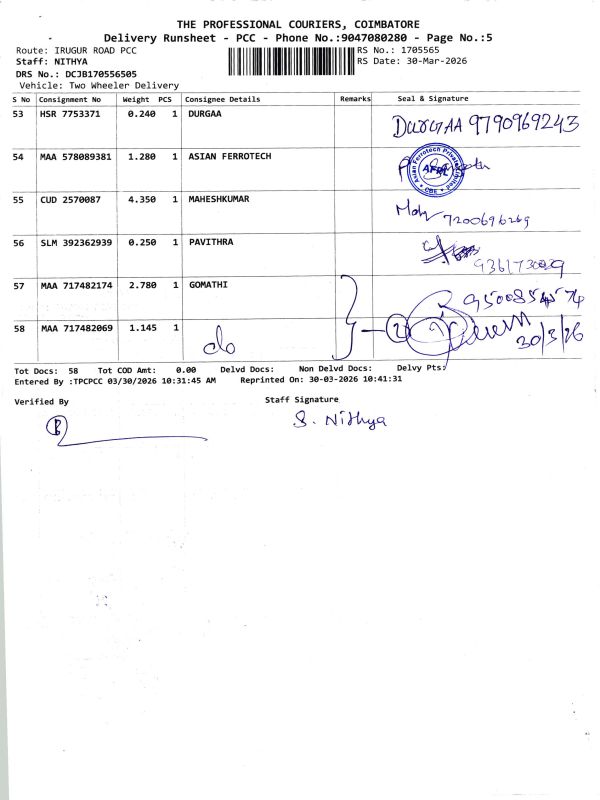 THE PROFESSIONAL COURIERS, COIMBATORE
Delivery Runsheet - PCC - Phone No.:9047080280 - Page No.:5
Route: IRUGUR ROAD PCC
Staff: NITHYA
DRS No.: DCJB170556505
Vehicle: Two Wheeler Delivery
RS No.: 1705565
RS Date: 30-Mar-2026
S No Consignment No Weight PCS Consignee Details Remarks Seal & Signature
53 HSR 7753371 0.240 1 DURGAA DURGAA 9790969243
54 MAA 578089381 1.280 1 ASIAN FERROTECH
Asian Ferrotech Private Limited
AFPL
CBE
55 CUD 2570087 4.350 1 MAHESHKUMAR 7200696269
56 SLM 392362939 0.250 1 PAVITHRA
57 MAA 717482174 2.780 1 GOMATHI
58 MAA 717482069 1.145 1 do 2 30/3/26
Tot Docs: 58 Tot COD Amt: 0.00 Delvd Docs: Non Delvd Docs: Delvy Pts:
Entered By :TPCPCC 03/30/2026 10:31:45 AM Reprinted On: 30-03-2026 10:41:31
Verified By Staff Signature
S. Nithya